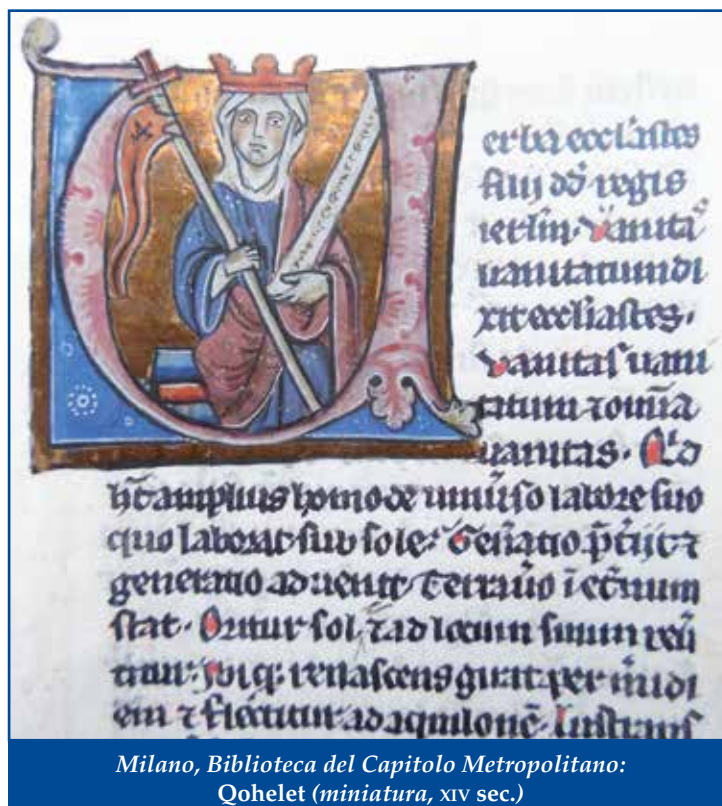 Uerba eccl̅astes
filij dd̅ regis
ierl̅m. Vanitaˢ
uanitatum di
xit eccl̅iastes.
Vanitas uani
tatum ⁊ om̅ia
uanitas. Qͥd
h̅t amplius homo de uniu̅so labore suo
quo laborat sub sole. Gen̅atio p̅t̅ijt ⁊
generatio aduenit. terra u̅o i̅ et̅num
stat. Oritur sol, ⁊ ad locum suum reu̅
titur: Ibiq; renascens girat per m̅idi
em ⁊ flectitur ad aquilone̅. lustrans
Milano, Biblioteca del Capitolo Metropolitano:
Qohelet (miniatura, XIV sec.)